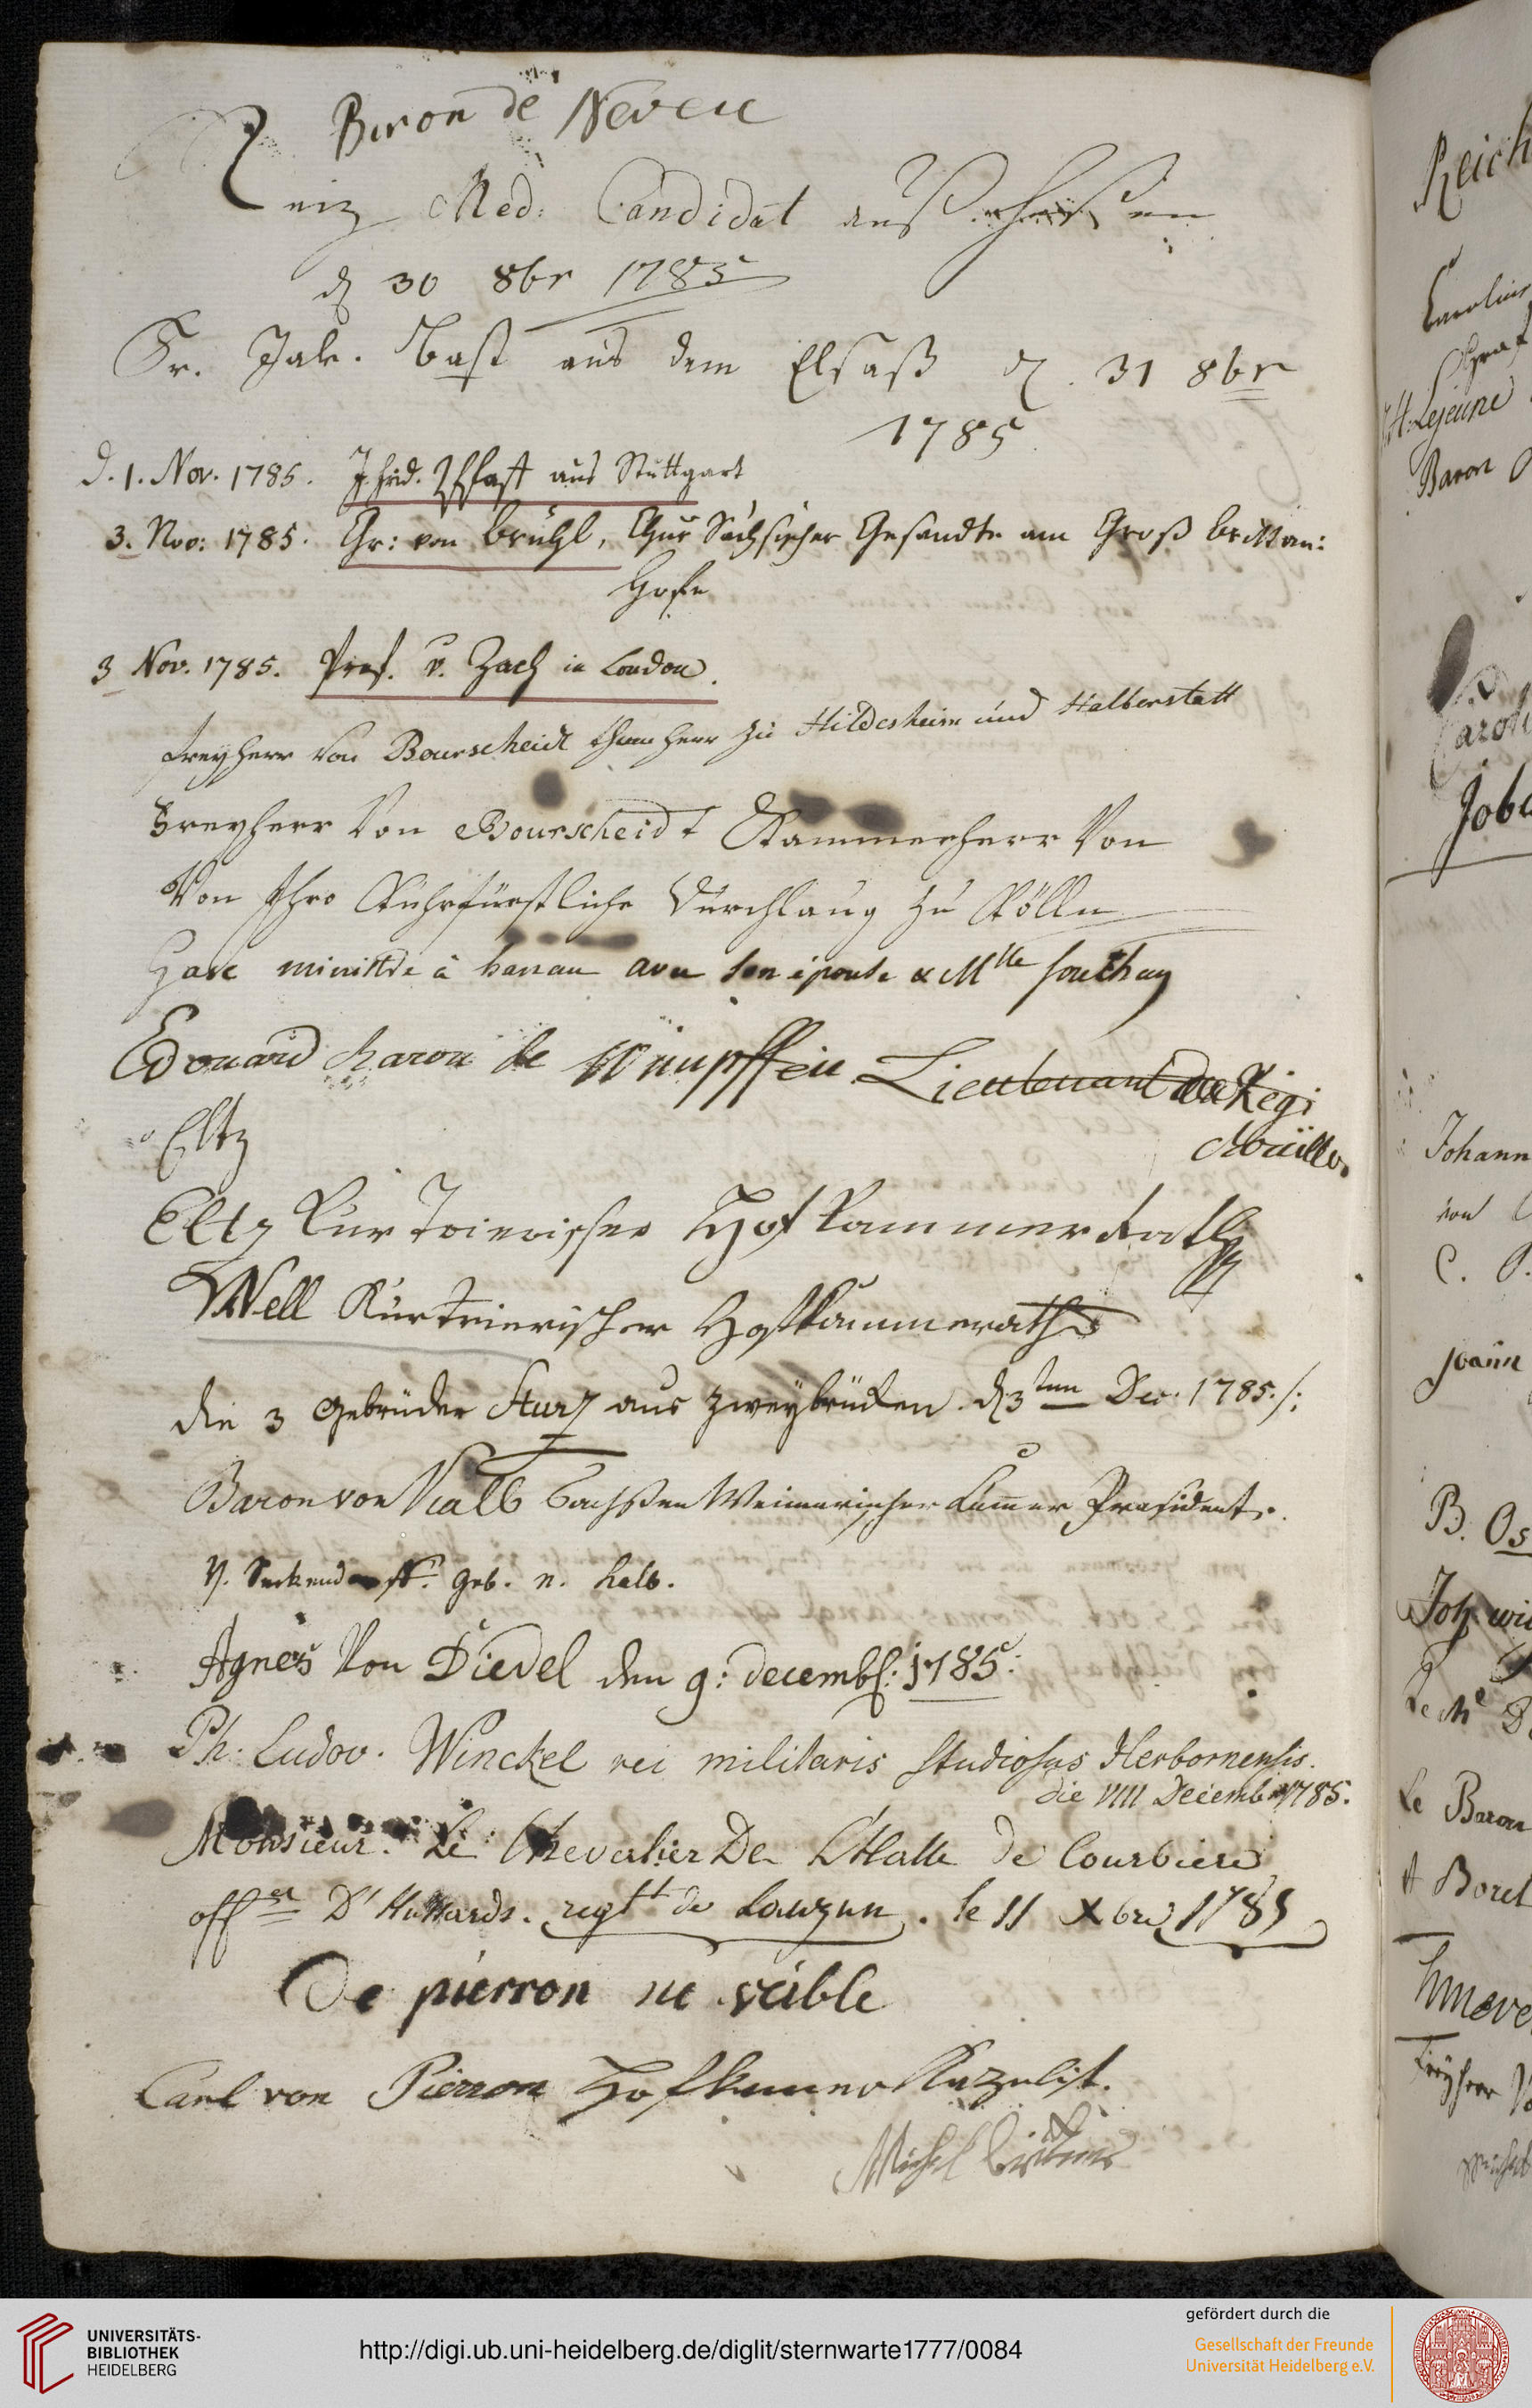 Baron de Neveu
Med: Candidat auß
d 30 8br 1785
Fr. Jak. Bast aus dem Elsaß d. 31 8br
1785
d. 1. Nov. 1785. J. Frid. Pfaff aus Stuttgart
3. Nov: 1785. Gr: von Brühl, Chur Sächsischer Gesandte am Groß Brittan:
Hofe
3 Nov. 1785. Prof. v. Zach in London.
freyherr von Bourscheidt thumherr zu Hildesheim und Halberstatt
Freyherr Von Bourscheidt Kammerherr Von
Von Ihro Kuhrfürstliche Durchlaug zu Kölln
ministre à hanau avec son épouse & Mlle Souchay
Edouard baron de Wimpffen Lieutenant du Regi
Eltz
Eltz Kurtrierischer Hofkammerrath
Well Kurtrierischer Hofkammerath
die 3 Gebrüder Sturz aus Zweybrücken. d 3ten Dec. 1785./:
Baron von Kalb Sachsen Weimarischer Kamer Praesident.
v. Seckendorff. geb. v. Kalb.
Agnes Von Diedel den 9: decemb: 1785:
Ph. Ludov. Winckel rei militaris studiosus Herbornensis.
die VIIII Decembr 1785.
Monsieur. Le Chevalier De L'Halle de Courbiere
offer D'Hussards. regtt de Lauzun. le 11 Xbre 1785
De pierron
Carl von Pierron Hofkammer Kanzelist.
Michel
Reich
Carolin
Graf
H: Lejeune
Baron
Carol
Johann
von
C.
Joann
B. Os
Joh. wi
Le Baron
A Borel
Freyherr
UNIVERSITÄTS-
BIBLIOTHEK
HEIDELBERG
http://digi.ub.uni-heidelberg.de/diglit/sternwarte1777/0084
gefördert durch die
Gesellschaft der Freunde
Universität Heidelberg e.V.